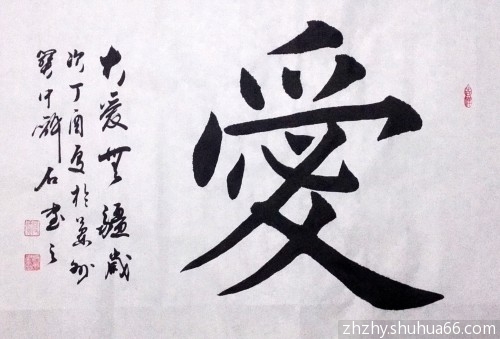 愛
大爱無疆歲
次丁酉夏於州
中石書之
zhzhy.shuhua66.com